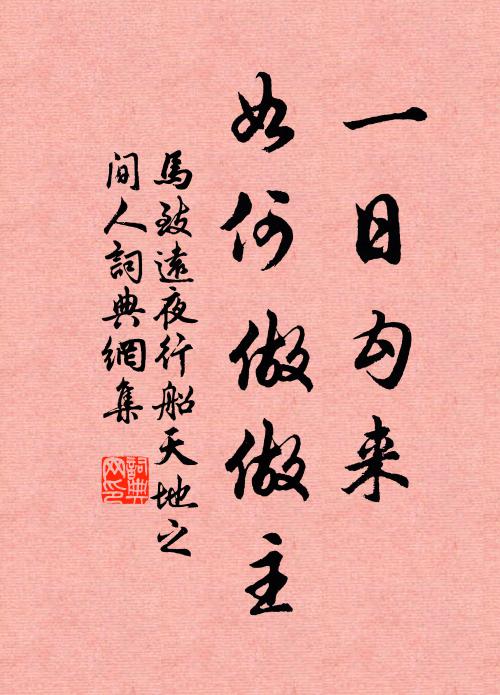 一日勾来
如何做做主
馬致遠夜行船天地之
间人詞典網集
詞典网印